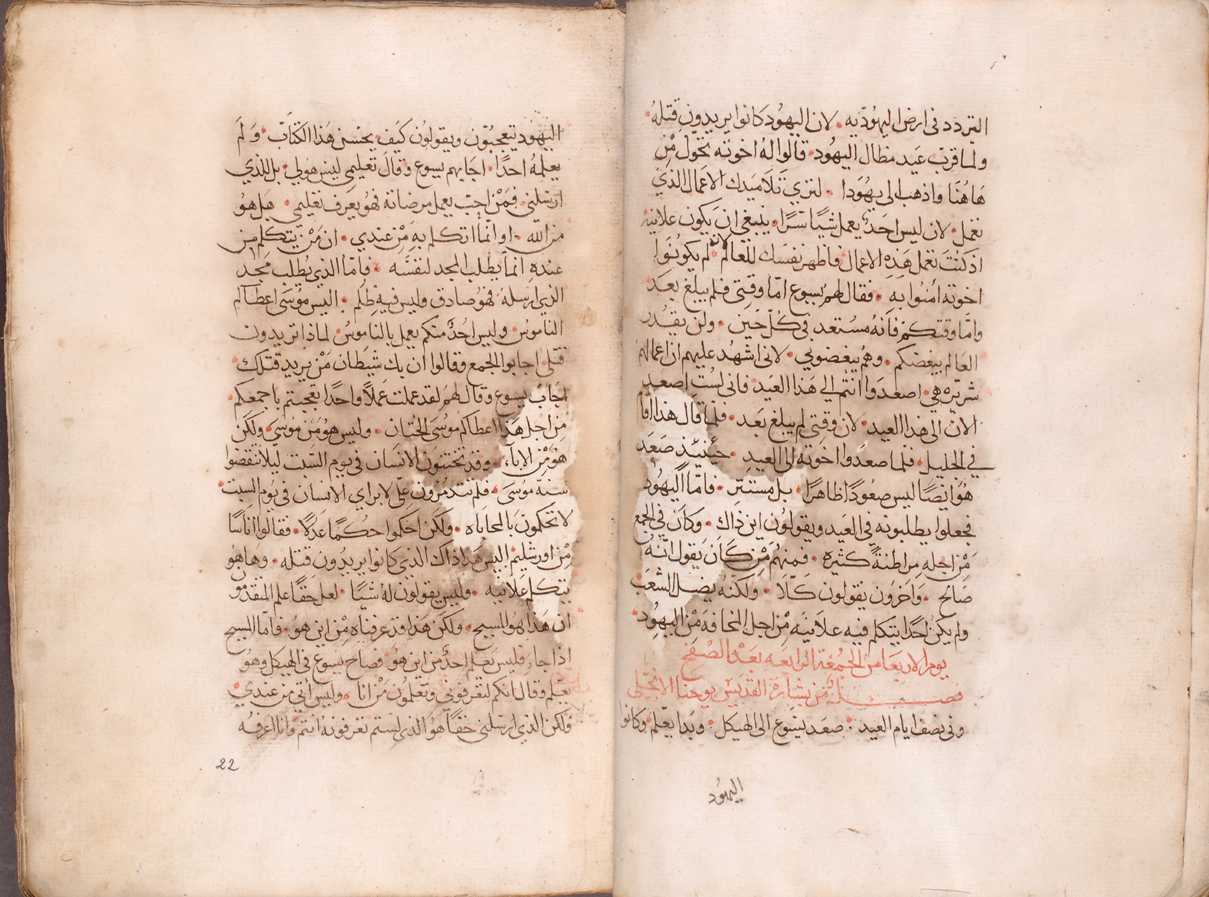 التردد في ارض اليهوديه • لان اليهود كانوا يريدون قتله •
ولما قرب عيد مظال اليهود • قالوا له اخوته تحول من
هاهنا واذهب الى يهودا • لتري تلاميدك الاعمال الذي
تعمل • لان ليس احد يعمل شيًا سرًا • ينبغي ان يكون علانيه
اذ كنت تعمل هذه الاعمال فاظهر نفسك للعالم • لان لم يكونوا
اخوته امنوا به • فقال لهم يسوع اما وقتي فلم يبلغ بعد •
واما وقتكم فانه مستعد في كل حين • ولن يقدر
العالم يبغضكم • وهم يبغضوني • لاني اشهد عليهم ان اعمالهم
شريره هي • اصعدوا انتم الي هذا العيد • فاني لست اصعد
الان الى هذا العيد • لان وقتي لم يبلغ بعد • فلما قال هذا اقام
في الجليل • فلما صعدوا اخوته الى العيد • حينيذ صعد
هو ايضًا ليس صعودًا ظاهرًا • بل مستتر • فاما اليهود
فجعلوا يطلبونه في العيد ويقولون اين ذاك • وكان في الجمع
من اجله مراطنةً كثيره • فمنهم من كان يقول انه
صالح • واخرون يقولون كلا • ولكنه يضل الشعب
ولم يكن احدًا يتكلم فيه علانيه من اجل المخافه من اليهود •
يوم الاربعا من الجمعة الرابعه بعد الفصح
فصل من بشارة القديس يوحنا الانجيلي
وفي نصف ايام العيد • صعد يسوع الى الهيكل • وبدا يعلم • وكانوا
اليهود
اليهود يتعجبون ويقولون كيف يحسن هذا الكتاب • ولم
يعلمه احدًا • اجابهم يسوع وقال تعليمي ليس هو لي • بل للذي
ارسلني • فمن احب يعمل مرضاته فهو يعرف تعليمي • هل هو
من الله • او انما اتكلم به من عندي • ان من يتكلم من
عنده انما يطلب المجد لنفسه • فاما الذي يطلب مجد
الذي ارسله • فهو صادق وليس فيه ظلم • اليس موسى اعطاكم
الناموس • وليس احدٌ منكم يعمل بالناموس • لماذا تريدون
قتلي • اجابوا الجمع وقالوا ان بك شيطان من يريد قتلك •
اجاب يسوع وقال لهم لقد عملت عملًا واحدًا تعجبتم باجمعكم •
من اجل هذا اعطاكم موسى الختان • وليس هو من موسى • ولكن
هو من الاباء • وقد تختنون الانسان في يوم السبت ليلا تنقضوا
سنه موسى • فلم تتدمرون علي لابراي الانسان في يوم السبت •
لا تحكمون بالمحاباه • ولكن احكموا حكمًا عدلًا • فقالوا اناسًا
من اورشليم • اليس هذا ذاك الذي كانوا يريدون قتله • وها هو
يتكلم علانيه • وليس يقولون له شيًا • لعل حقًا علم المتقدمو
ان هذا هو المسيح • ولكن هذا قد عرفناه من اين هو • فاما المسيح
اذا جا • فليس يعلم احدٌ من اين هو • فصاح يسوع في الهيكل وهو
يعلم وقال انكم لتعرفوني وتعلمون من انا • وليس اتي من عندي •
ولكن الذي ارسلني حقًا هو الذي لستم تعرفونه انتم • وانا اعرفه
22